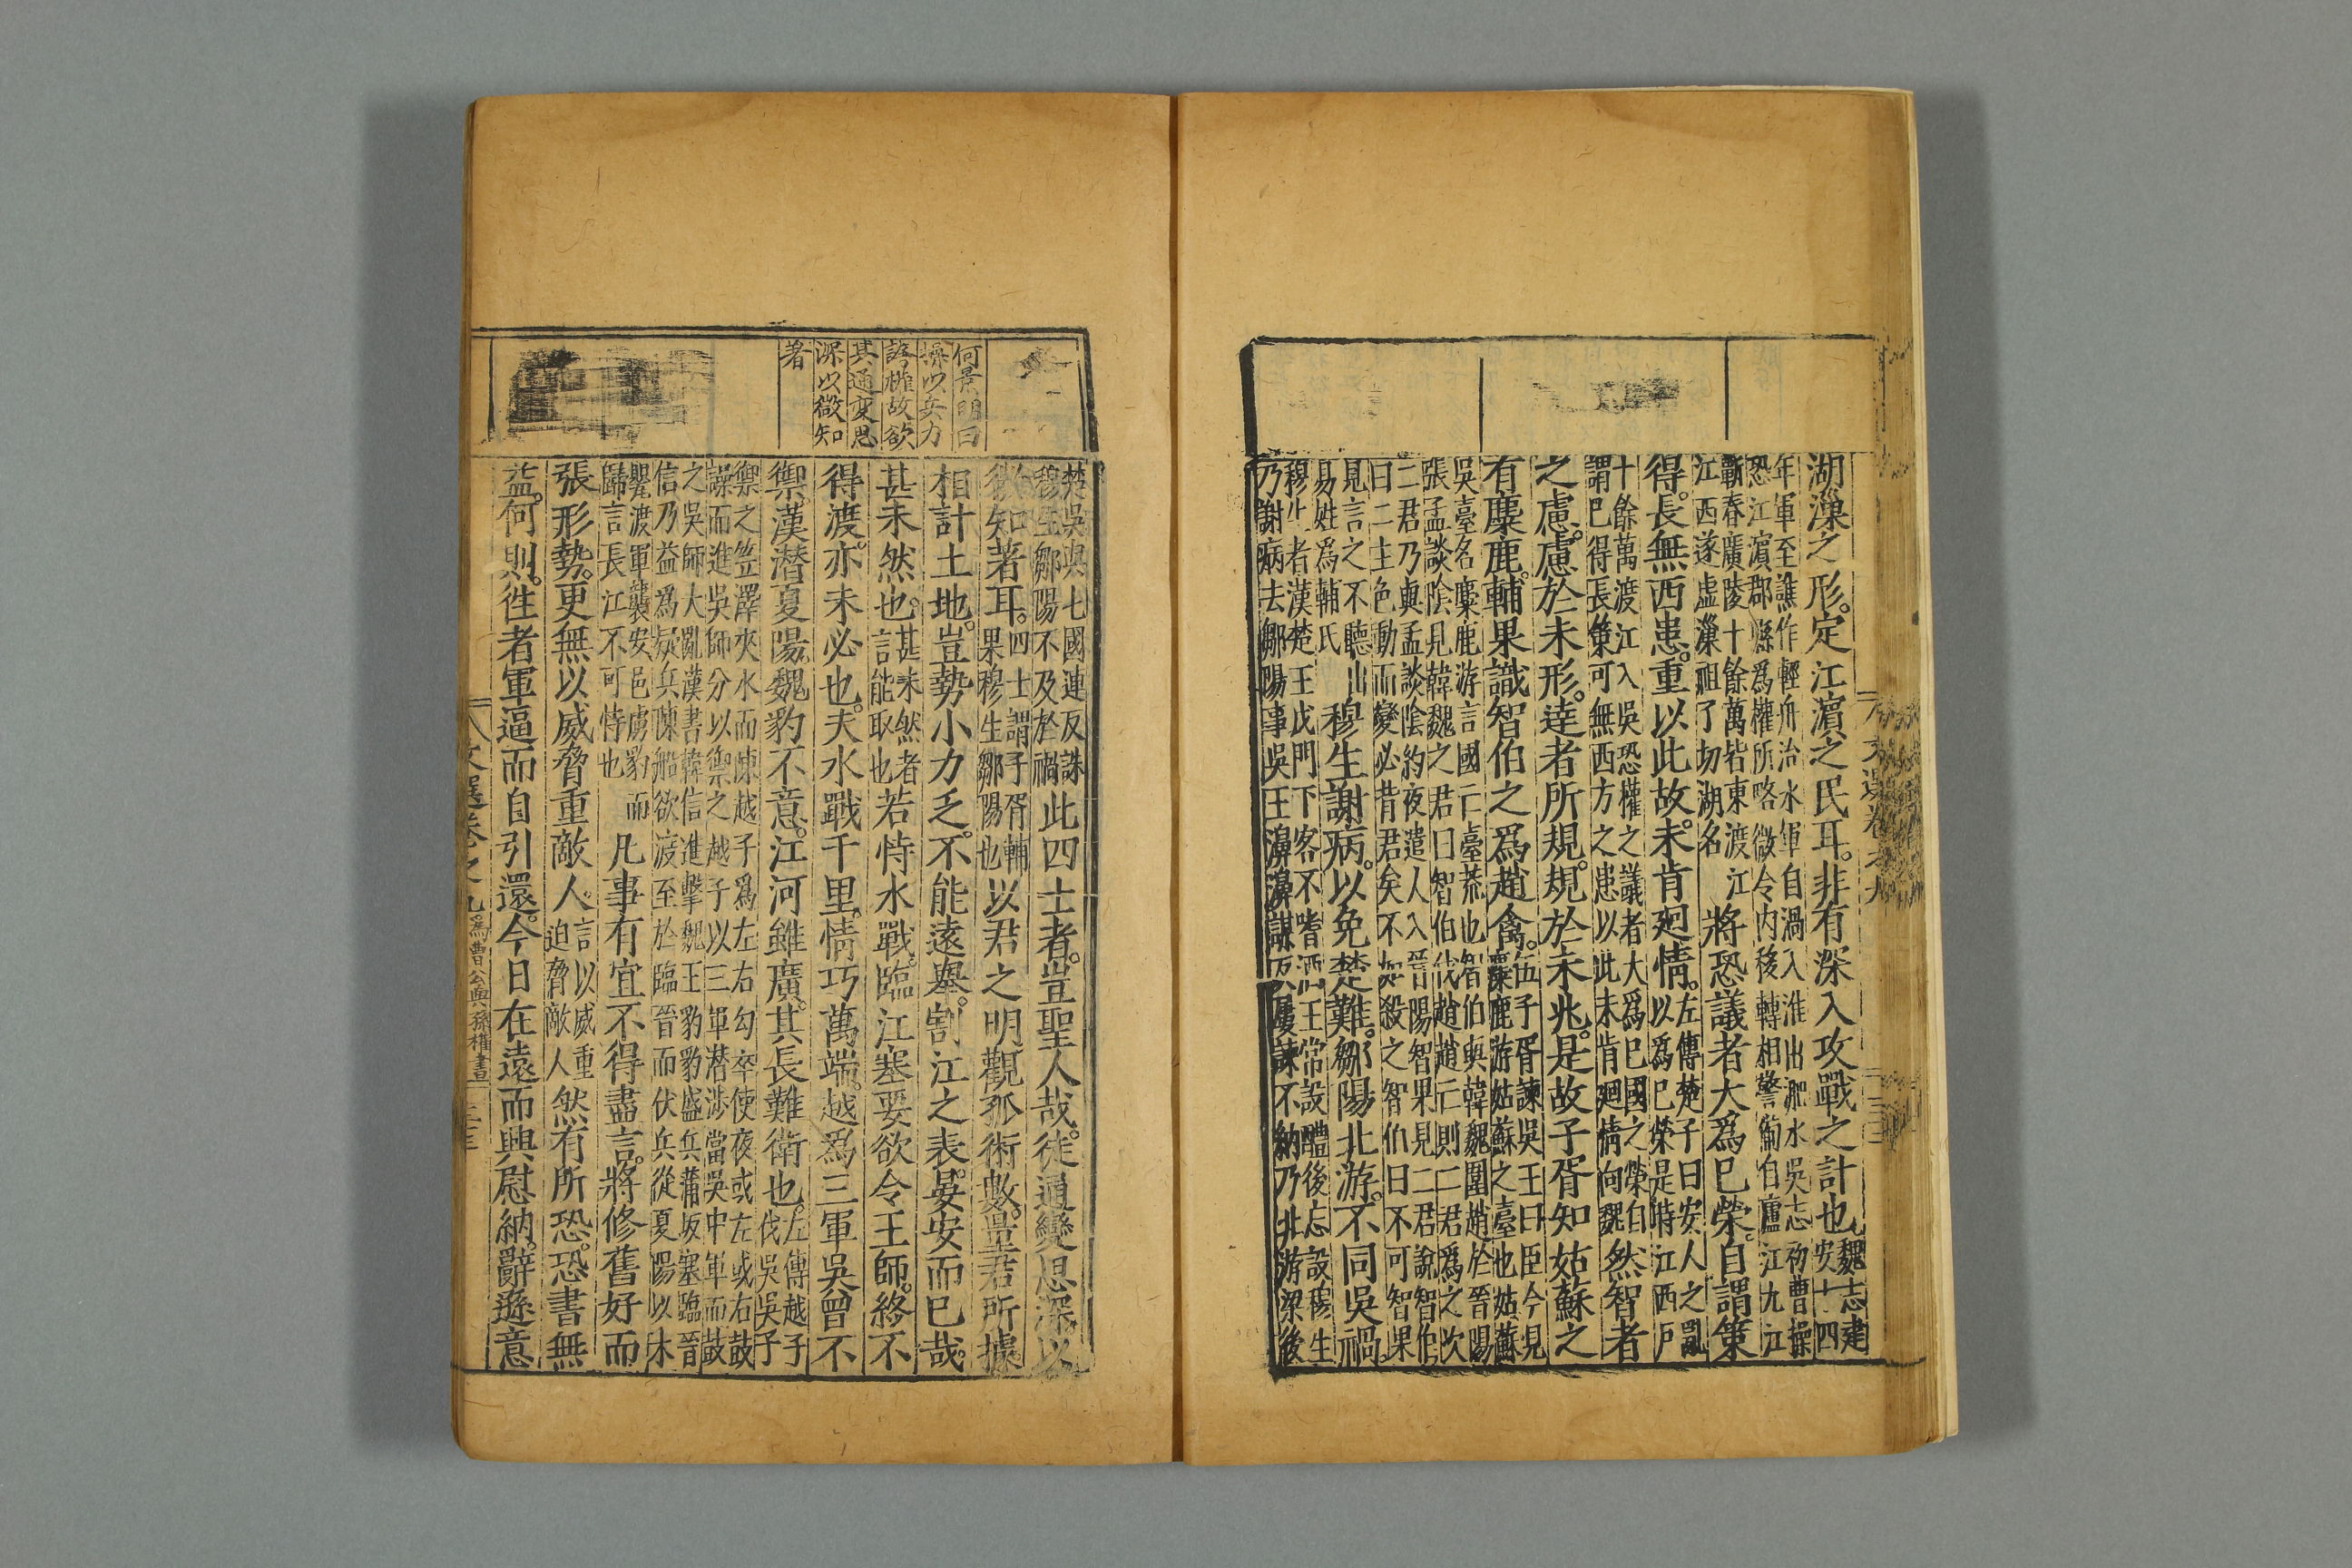 湖漅之形。定江濵之民耳。非有深入攻戰之計也。魏志建安十四
年軍至譙作輕舟治水軍自渦入淮出淝水吳志初曹操
恐江濵郡縣爲權所略徵令内移轉相警動自廬江九江
蘄春廣陵十餘萬皆東渡江
江西遂虛漅祖了切湖名
將恐議者大爲巳榮。自謂策
得。長無西患。重以此故。未肯廻情。左傳楚子曰安人之亂
以爲巳榮是時江西戸
十餘萬渡江入吳恐權之議者大爲巳國之榮自
謂巳得長策可無西方之患以此未肯廻情向魏
然智者
之慮。慮於未形。逹者所規。規於未兆。是故子胥知姑蘇之
有麋鹿。輔果識智伯之爲趙禽。伍子胥諫吳王曰臣今見
麋鹿游姑蘇之臺也姑蘇
吳臺名麋鹿游言國亡臺荒也智伯與韓魏圍趙於晉陽
張孟談陰見韓魏之君曰智伯伐趙趙亡則二君爲之次
二君乃與孟談陰約夜遣人入晉陽智果見二君說智伯
曰二主色動而變必背君矣不如殺之智伯曰不可智果
見言之不聽出
易姓爲輔氏
穆生謝病。以免楚難。鄒陽北游。不同吳禍。
穆生者漢楚王戊門下客不嗜酒王常設醴後忘設穆生
乃謝病去鄒陽事吳王濞濞謀反屢諫不納乃北游梁後
文選卷之九
楚吳與七國連反誅
穆生鄒陽不及於禍
此四士者。豈聖人哉。徒通變思深以
微知著耳。四士謂子胥輔
果穆生鄒陽也
以君之明觀孤術數。量君所據
相計土地。豈勢小力乏。不能遠舉。割江之表。晏安而巳哉。
甚未然也。甚未然者
言能取也
若恃水戰。臨江塞要欲令王師。終不
得渡。亦未必也。夫水戰千里。情巧萬端。越爲三軍吳曾不
禦。漢潛夏陽。魏豹不意。江河雖廣。其長難衛也。左傳越子
伐吳吳子
禦之笠澤夾水而陳越子爲左右勾卒使夜或左或右鼓
譟而進吳師分以禦之越子以三軍潛涉當吳中軍而鼓
之吳師大亂漢書韓信進擊魏王豹豹盛兵蒲坂塞臨晉
信乃益爲疑兵陳船欲渡至於臨晉而伏兵從夏陽以木
罌渡軍襲安邑虜豹而
歸言長江不可恃也
凡事有宜不得盡言。將修舊好而
張形勢。更無以威脅重敵人。言以威重
迫脅敵人
然有所恐。恐書無
益。何則。徃者軍逼而自引還。今日在遠而興慰納。辭遜意
何景明曰
操以兵力
誇權故欲
其通变思
深以微知
著
文選卷之九 爲曹公與孫權書